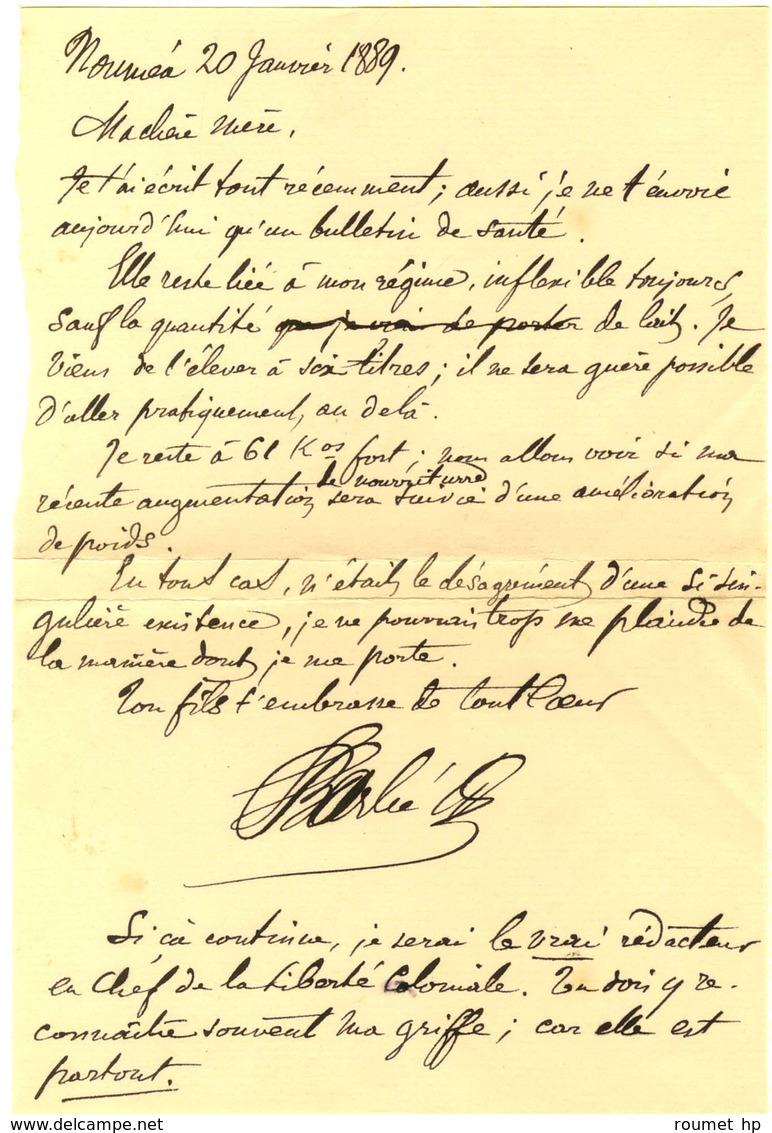 Nouméa 20 Janvier 1889.
Ma chère mère,
Je t'ai écrit tout récemment ; aussi je ne t'envoie
aujourd'hui qu'un bulletin de santé.
Elle reste liée à mon régime, inflexible toujours,
sauf la quantité que je vais de porter de lait. Je
viens de l'élever à six litres ; il ne sera guère possible
d'aller pratiquement, au delà.
Je reste à 61 Kos fort ; nous allons voir si ma
récente augmentation de nourriture sera suivie d'une amélioration
de poids.
En tout cas, n'était le désagrément d'une si sin-
gulière existence, je ne pourrais trop me plaindre de
la manière dont je me porte.
Ton fils t'embrasse de tout cœur
Si çà continue, je serai le vrai rédacteur
en Chef de la Liberté Coloniale. Tu dois y re-
connaître souvent ma griffe ; car elle est
partout.
roumet hp